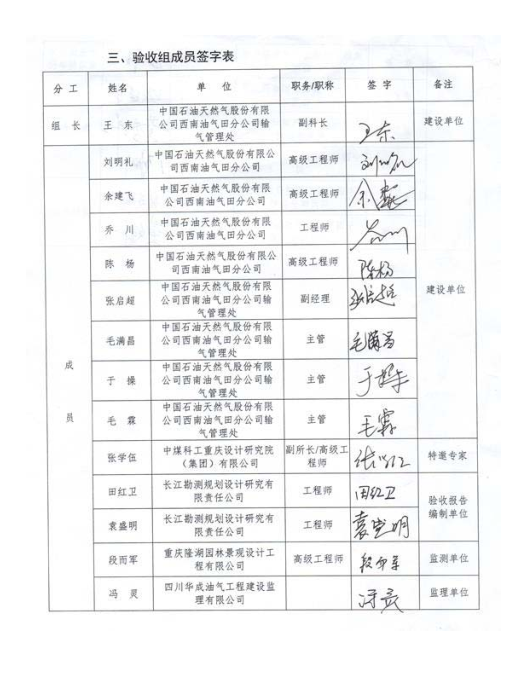 三、验收组成员签字表
分 工 姓名 单 位 职务/职称 签 字 备注
组 长 王 东 中国石油天然气股份有限公司西南油气田分公司输气管理处 副科长 王东 建设单位
成员
刘明礼 中国石油天然气股份有限公司西南油气田分公司 高级工程师 建设单位
余建飞 中国石油天然气股份有限公司西南油气田分公司 高级工程师
乔 川 中国石油天然气股份有限公司西南油气田分公司 工程师
陈 杨 中国石油天然气股份有限公司西南油气田分公司 高级工程师 陈杨
张启超 中国石油天然气股份有限公司西南油气田分公司输气管理处 副经理
毛满昌 中国石油天然气股份有限公司西南油气田分公司输气管理处 主管 毛满昌
于 操 中国石油天然气股份有限公司西南油气田分公司输气管理处 主管
毛 霖 中国石油天然气股份有限公司西南油气田分公司输气管理处 主管 毛霖
张学伍 中煤科工重庆设计研究院（集团）有限公司 副所长/高级工程师 特邀专家
田红卫 长江勘测规划设计研究有限责任公司 工程师 田红卫 验收报告编制单位
袁盛明 长江勘测规划设计研究有限责任公司 工程师 袁盛明
段而军 重庆隆湖园林景观设计工程有限公司 高级工程师 段而军 监测单位
冯 灵 四川华成油气工程建设监理有限公司 冯灵 监理单位